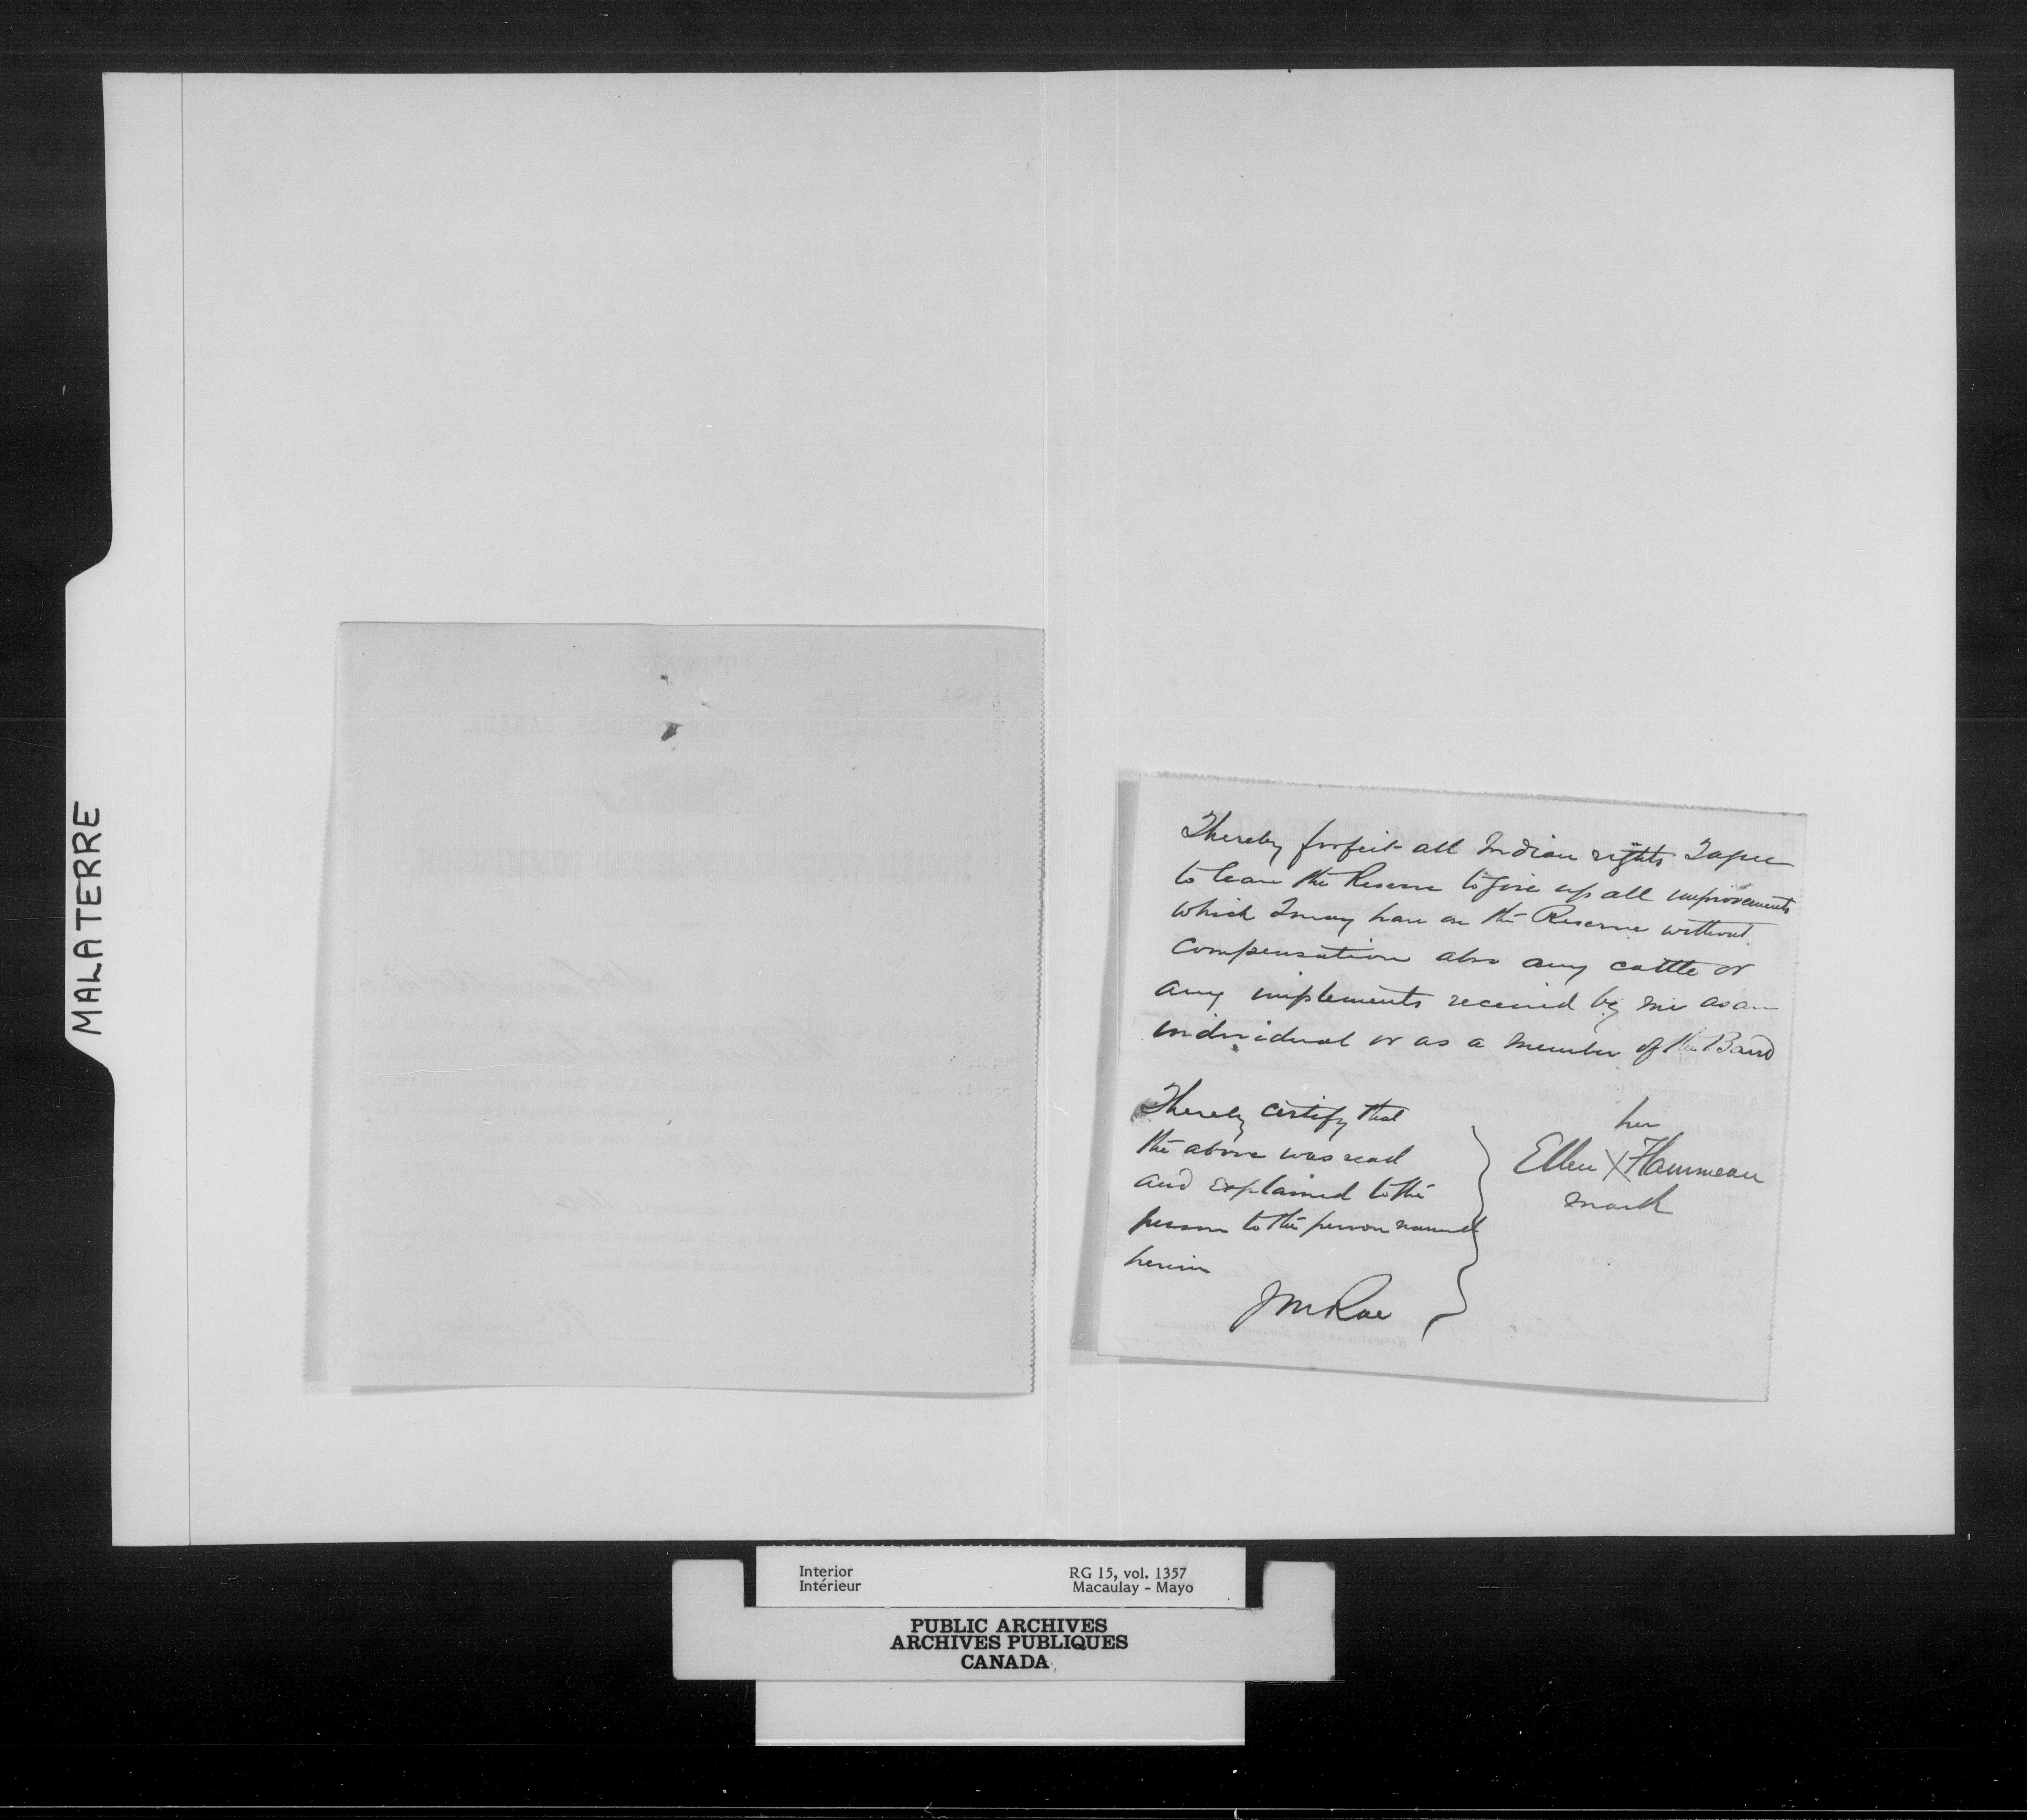 MALATERRE
I hereby forfeit all Indian rights I agree
to leave the Reserve to give up all improvements
which I may have on the Reserve without
compensation also any cattle or
any implements received by me as an
individual or as a member of the Band
I hereby certify that
the above was read
and explained to the
person to the person named
herein
JM Rae
her
Ellen X Hammeau
mark
Interior
Intérieur
RG 15, vol. 1357
Macaulay - Mayo
PUBLIC ARCHIVES
ARCHIVES PUBLIQUES
CANADA